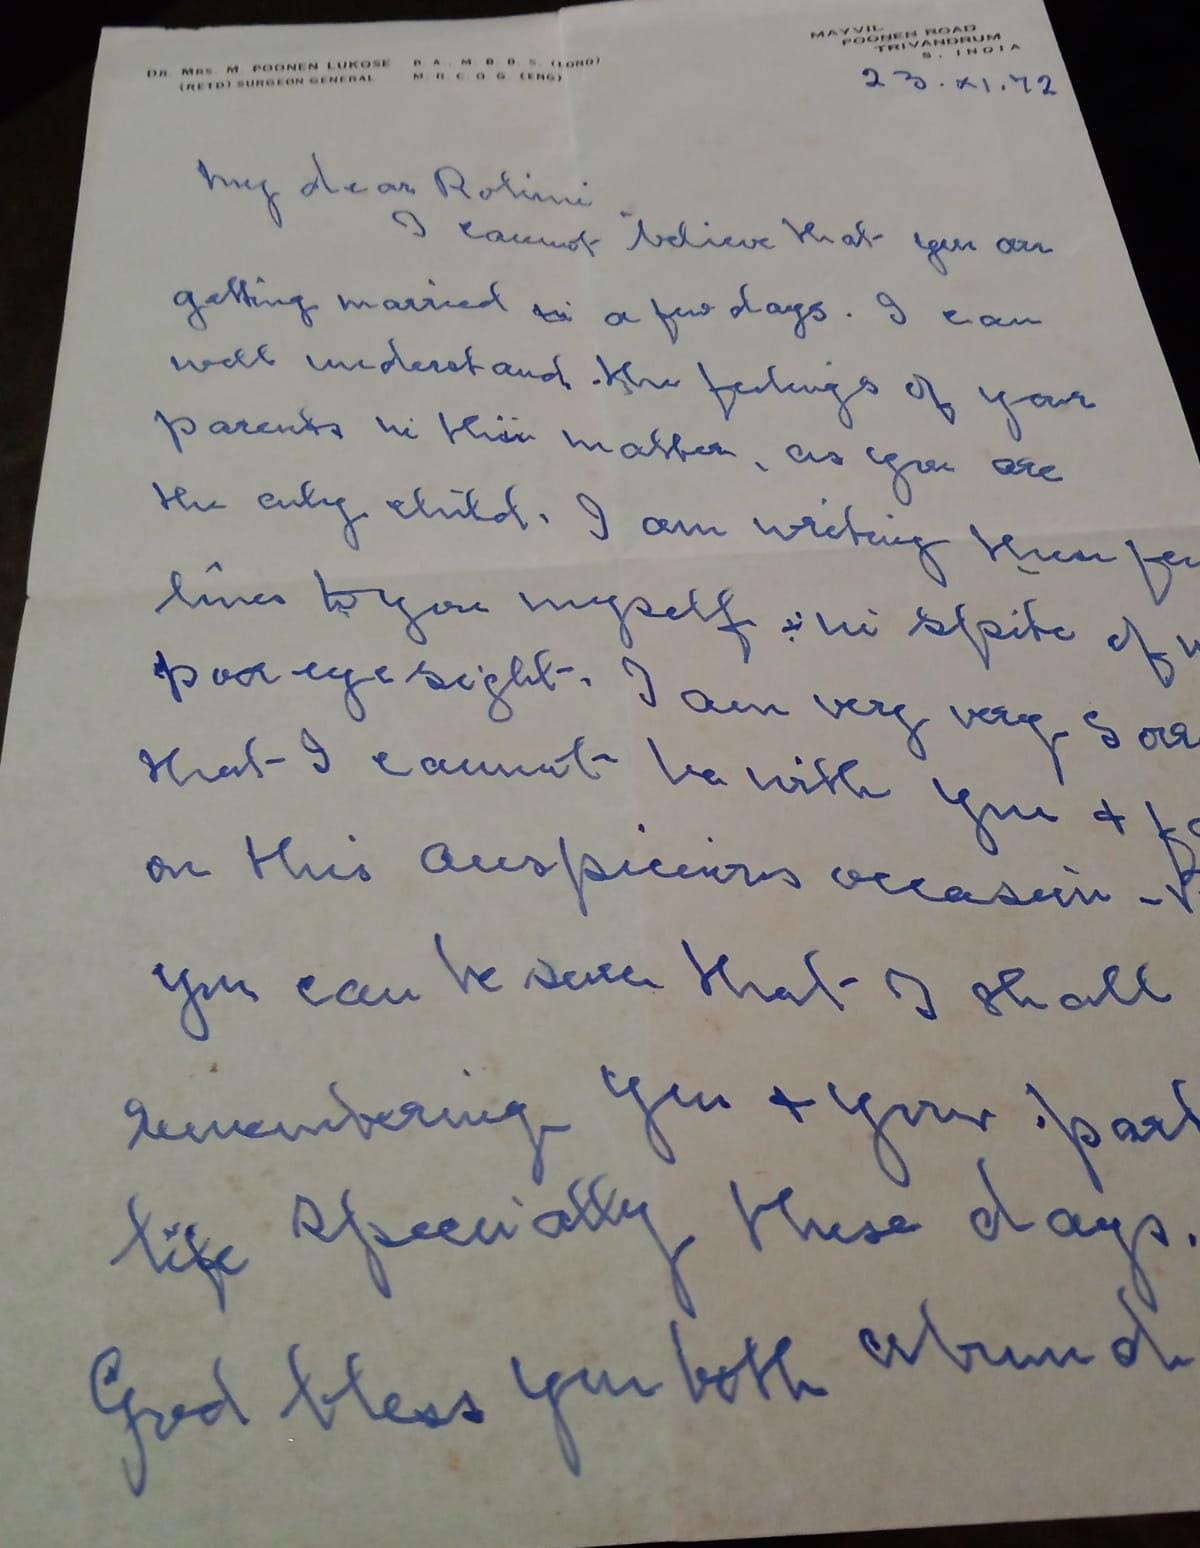 DR. MRS. M. POONEN LUKOSE B. A., M. B. B. S. (LOND)
(RETD) SURGEON GENERAL M. R. C. O. G. (ENG)
MAYVIL
POONEN ROAD
TRIVANDRUM
S. INDIA
23.XI.72
My dear
I cannot believe that you are
getting married in a few days. I can
well understand the feelings of your
parents in this matter, as you are
the only child. I am writing these few
lines to you myself in spite of
poor eyesight. I am very very
that I cannot be with you +
on this auspicious occasion -
you can be sure that I shall
remembering you + your
life specially these days.
God bless you both